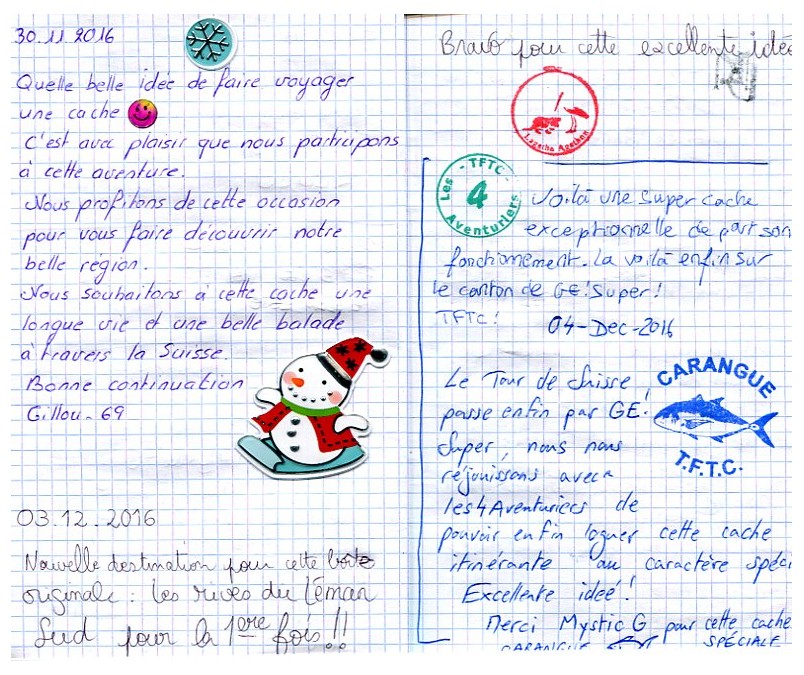 30.11.2016
Quelle belle idée de faire voyager
une cache
C'est avec plaisir que nous participons
à cette aventure.
Nous profitons de cette occasion
pour vous faire découvrir notre
belle région.
Nous souhaitons à cette cache une
longue vie et une belle balade
à travers la Suisse.
Bonne continuation
Gillou-69
03.12.2016
Nouvelle destination pour cette boite
originale : les rives du Léman
Sud pour la 1ere fois !!
Bravo pour cette excellente idée
Agathon
Les - TFTC -
4
Aventuriers
Voilà une super cache
exceptionnelle de part son
fonctionnement. La voilà enfin sur
le canton de GE! Super!
TFTC!
04-Dec-2016
Le Tour de Suisse
passe enfin par GE!
Super, nous nous
réjouissons avec
les 4 Aventuriers de
pouvoir enfin loguer cette cache
itinérante au caractère spéci
Excellente ideé!
Merci Mystic G pour cette cache
CARANGUE SPÉCIALE
CARANGUE
T.F.T.C.